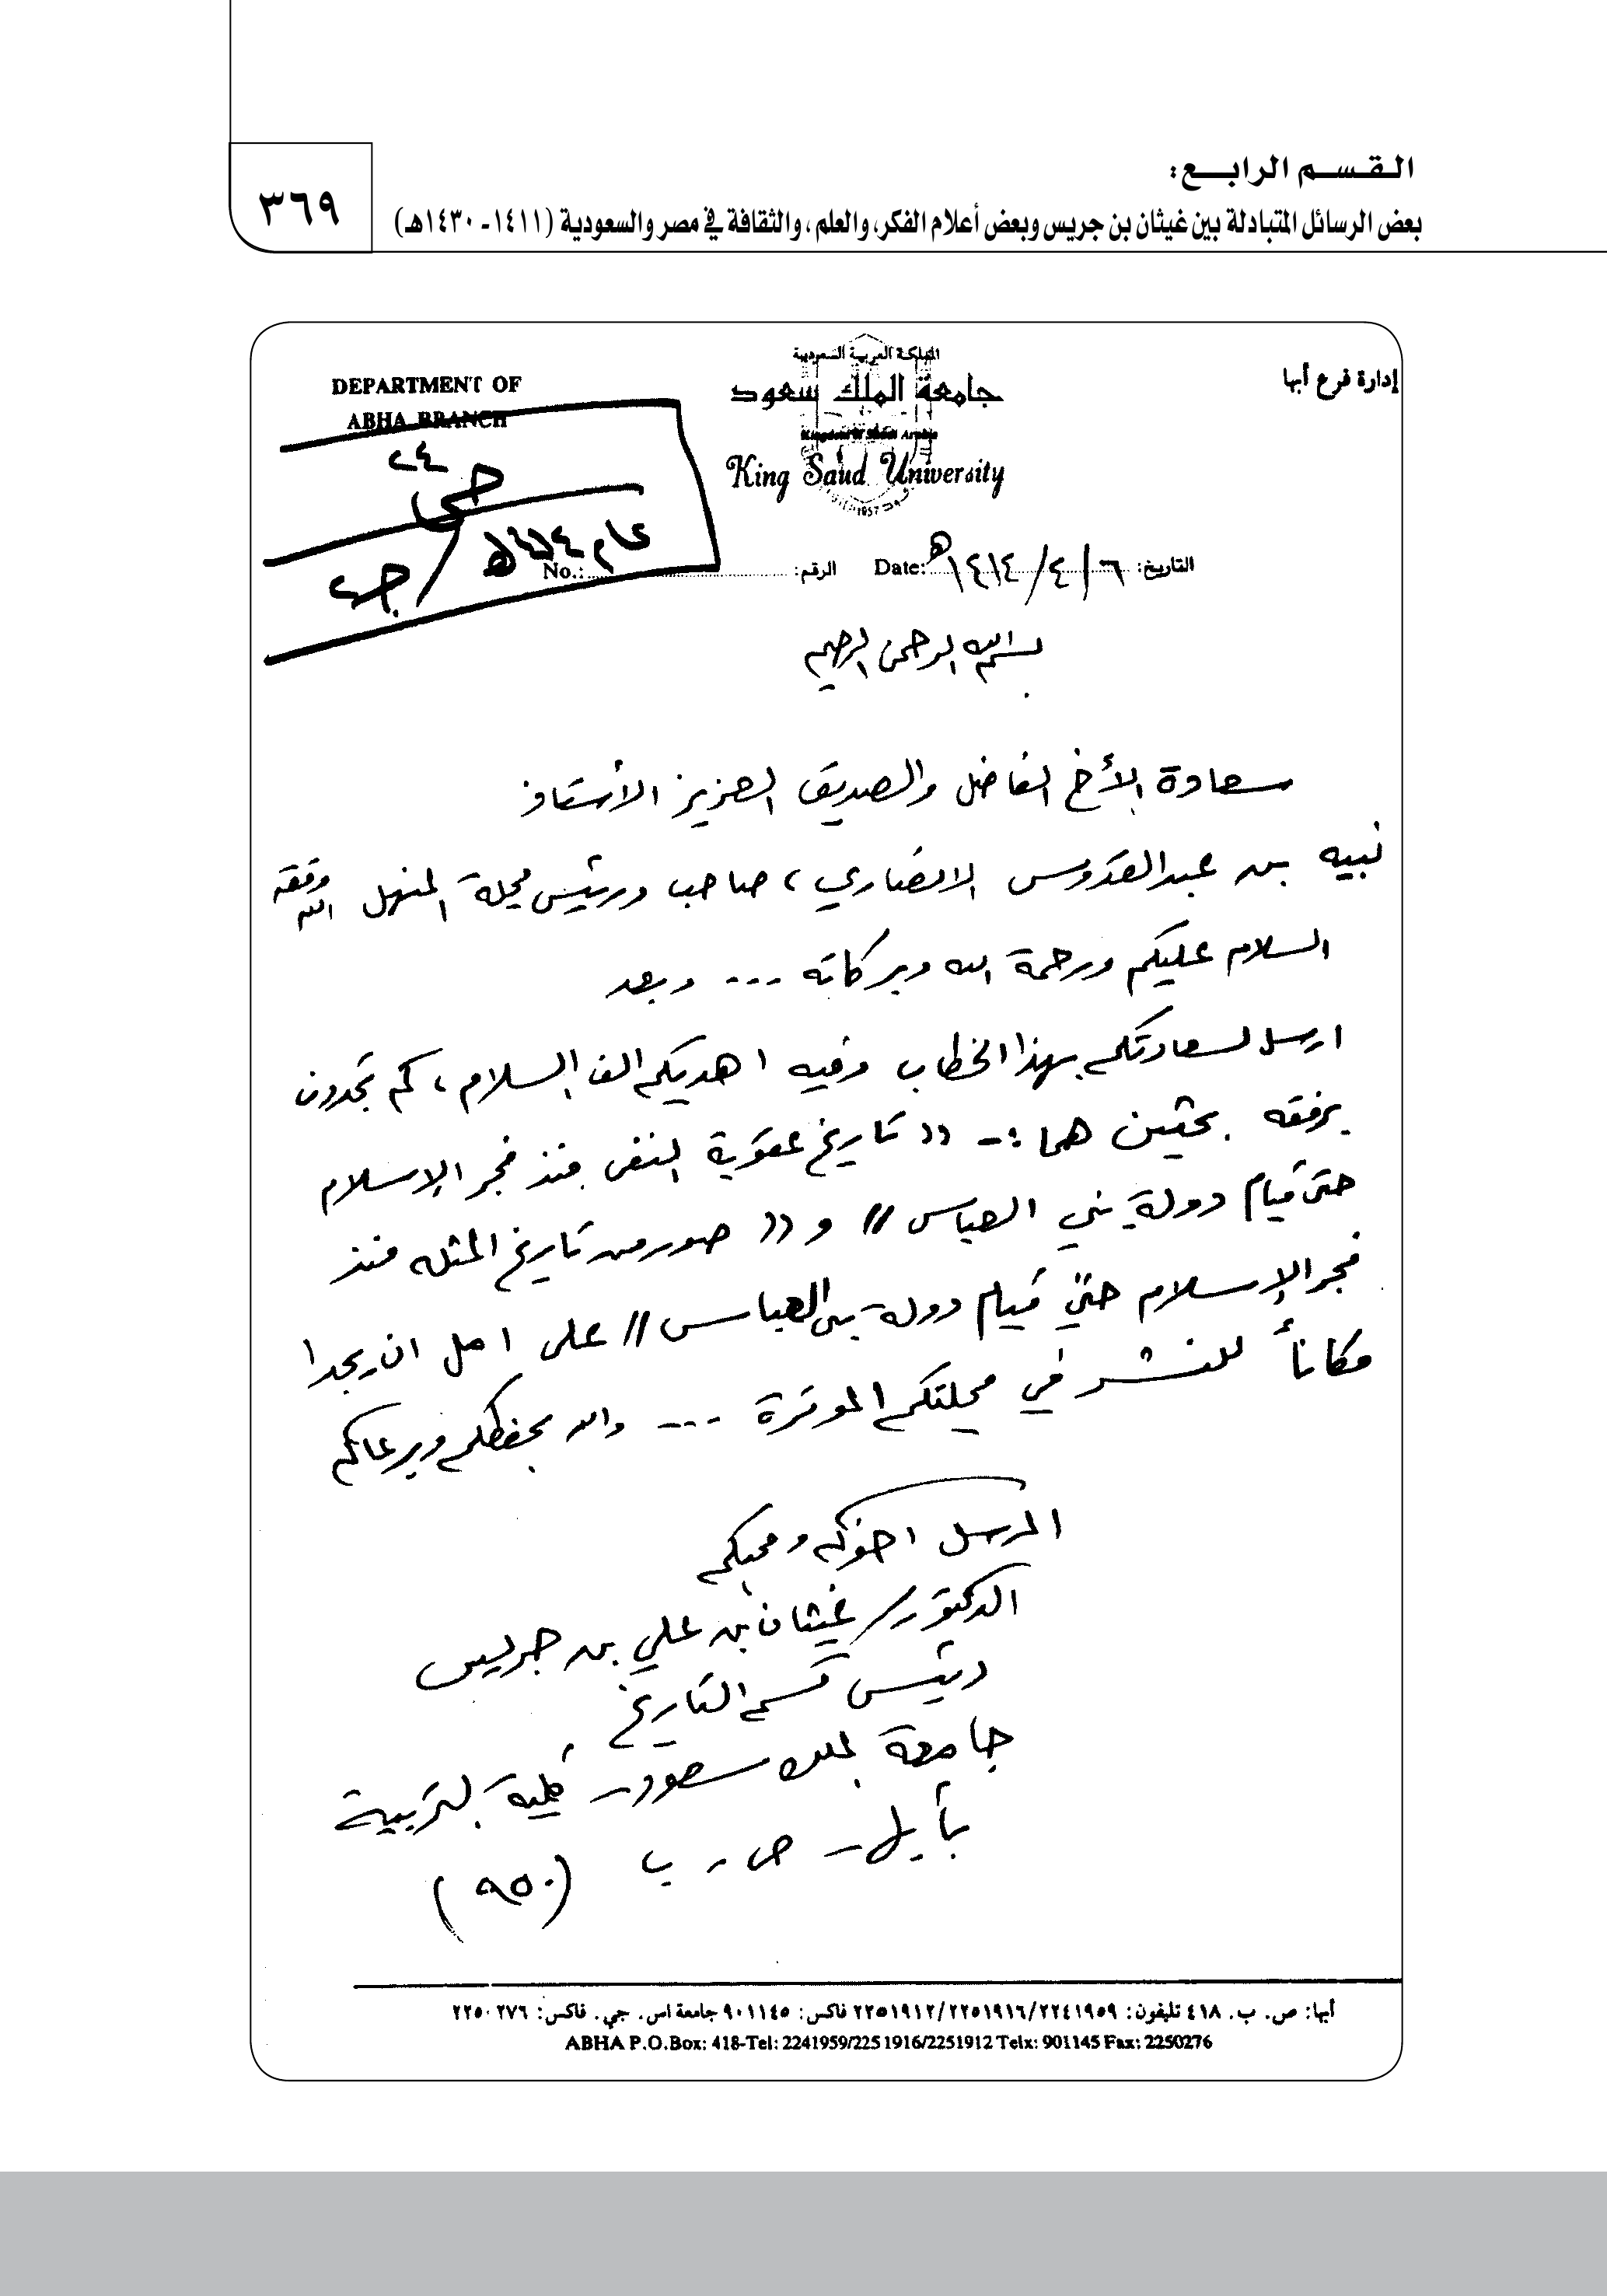 القسم الرابع:
بعض الرسائل المتبادلة بين غيثان بن جريس وبعض أعلام الفكر، والعلم، والثقافة في مصر والسعودية (١٤١١-١٤٣٠هـ)
٣٦٩
إدارة فرع أبها
المملكة العربية السعودية
جامعة الملك سعود
Kingdom of Saudi Arabia
King Saud University
1957
DEPARTMENT OF
ABHA BRANCH
عام ١٤١٤هـ
التاريخ: ٦/٤/١٤١٤هـ Date:
الرقم: No.:
بسم الله الرحمن الرحيم
سعادة الأخ الفاضل والصديق العزيز الأستاذ
نبيه بن عبدالقدوس الانصاري، صاحب ورئيس مجلة المنهل وفقه الله
السلام عليكم ورحمة الله وبركاته --- وبعد
ارسل لسعادتكم بهذا الخطاب وفيه اهديكم الف السلام، كم تجدون
برفقه بحثين هما :- (( تاريخ عقوبة النفي منذ فجر الإسلام
حتى قيام دولة بني العباس // و (( صور من تاريخ المثله منذ
فجر الإسلام حتى قيام دولة بني العباس // على امل ان يجدا
مكاناً للنشر في مجلتكم الموقرة --- والله يحفظكم ويرعاكم
المرسل اخوكم ومحبكم
الدكتور/ غيثان بن علي بن جريس
رئيس قسم التاريخ
جامعة الملك سعود - كلية التربية
بأبها - ص . ب (٩٥٠)
أبها: ص. ب. ٤١٨ تليفون: ٢٢٥١٩١٢/٢٢٥١٩١٦/٢٢٤١٩٥٩ فاكس: ٩٠١١٤٥ جامعة اس. جي. فاكس: ٢٢٥٠٢٧٦
ABHA P.O.Box: 418-Tel: 2241959/2251916/2251912 Telx: 901145 Fax: 2250276